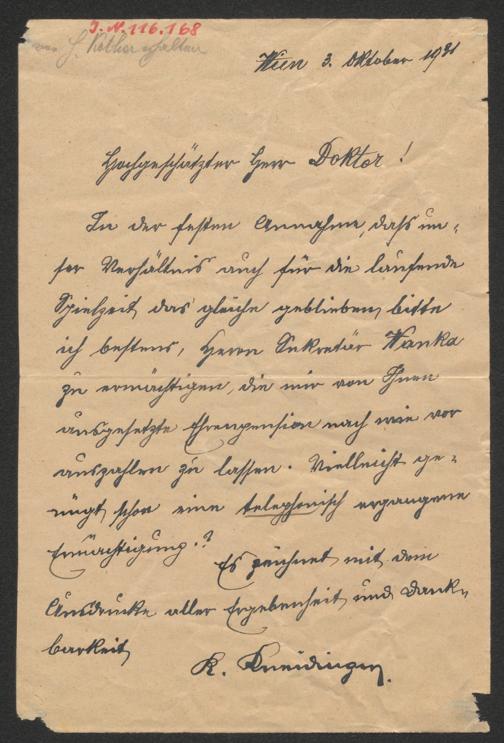 J.N. 116.168
Wien 3. Oktober 1931
Hochgeschätzter Herr Doktor!
In der festen Annahme, dass un=
ser Verhältnis auch für die laufende
Spielzeit das gleiche geblieben, bitte
ich bestens, Herrn Sekretär Wanka
zu ermächtigen, die mir von Ihnen
ausgesetzte Ehrenpension nach wie vor
auszahlen zu lassen. Vielleicht ge=
nügt schon eine telephonisch ergangene
Ermächtigung.?
Es zeichnet mit dem
Ausdrucke aller Ergebenheit und Dank=
barkeit
K. Kneidinger.